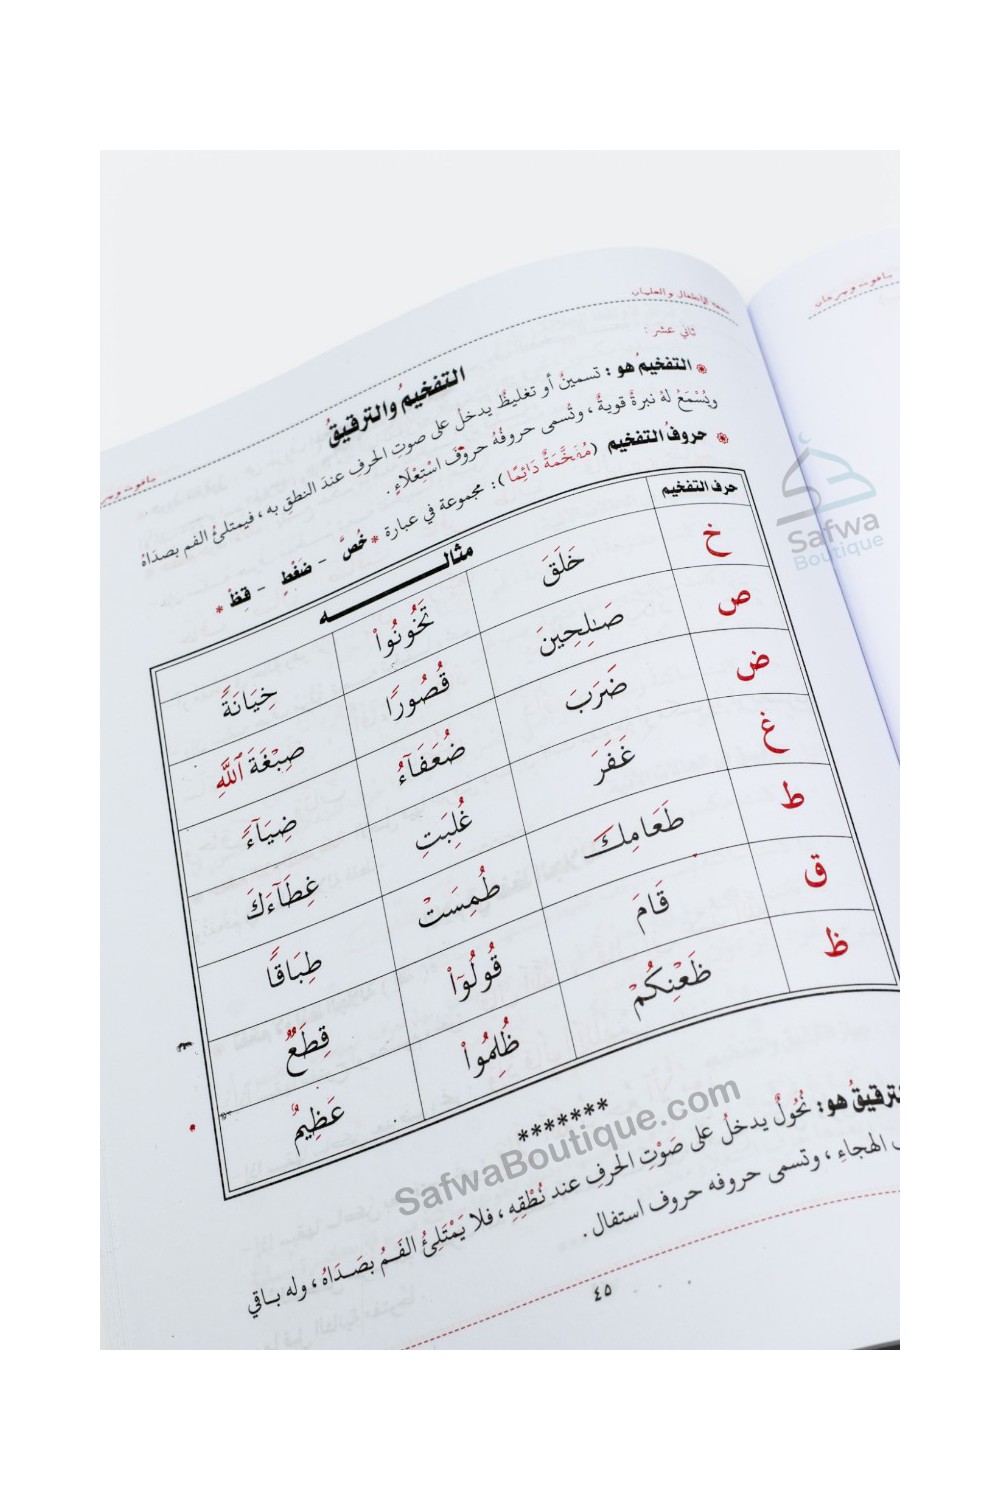 تحفة الأطفال والغلمان
ثاني عشر :
التفخيمُ والترقيقُ
التفخيمُ هو : تسمينٌ أو تغليظٌ يدخلُ على صوتِ الحرفِ عندَ النطقِ به ، فيمتلئُ الفم بصداهُ
ويُسْمَعُ لهُ نبرةٌ قويةٌ ، وتُسمى حروفُهُ حروفَ اسْتِعْلَاءٍ .
حروفُ التفخيم (مُفَخَّمَةٌ دَائِمًا) : مجموعة في عبارة * خُصَّ - ضَغْطٍ - قِظْ *
حرف التفخيم مثالـــــه
خ خَلَقَ تَخُونُوا۟ خِيَانَةً
ص صَـٰلِحِينَ قُصُورًا صِبْغَةَ ٱللَّهِ
ض ضَرَبَ ضُعَفَآءُ ضِيَآءً
غ غَفَرَ غُلِبَتِ غِطَآءَكَ
ط طَعَامِكَ طُمِسَتْ طِبَاقًا
ق قَامَ قُولُوٓا۟ قِطَعٌ
ظ ظَعْنِكُمْ ظُلِمُوا۟ عَظِيمٌ
*******
ترقيقُ هو : نُحُولٌ يدخلُ على صَوْتِ الحرفِ عند نُطْقِهِ ، فلا يَمْتَلِئُ الفَمُ بصَدَاهُ ، وله باقي
الهجاءِ ، وتسمى حروفه حروف استفال .
٤٥
Safwa
Boutique
SafwaBoutique.com